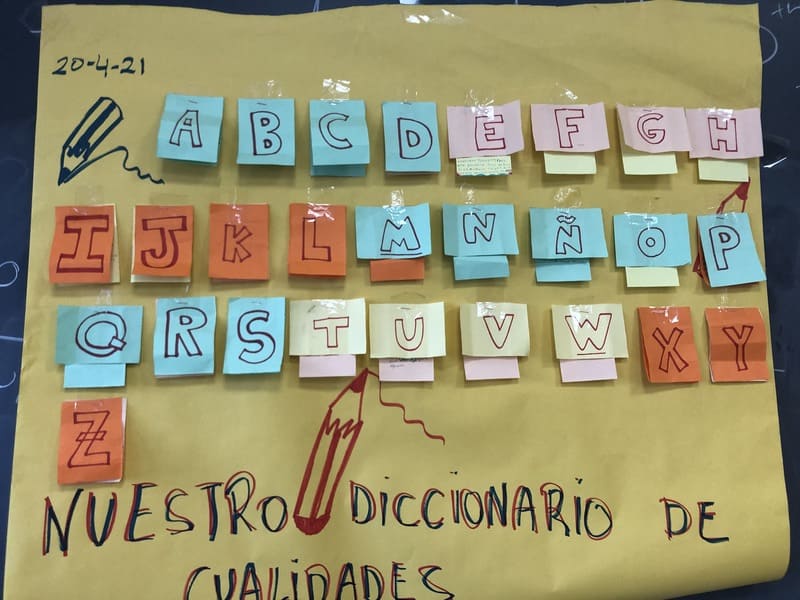 20-4-21
A B C D E F G H
I J K L M N Ñ O P
Q R S T U V W X Y
Z
NUESTRO DICCIONARIO DE
CUALIDADES